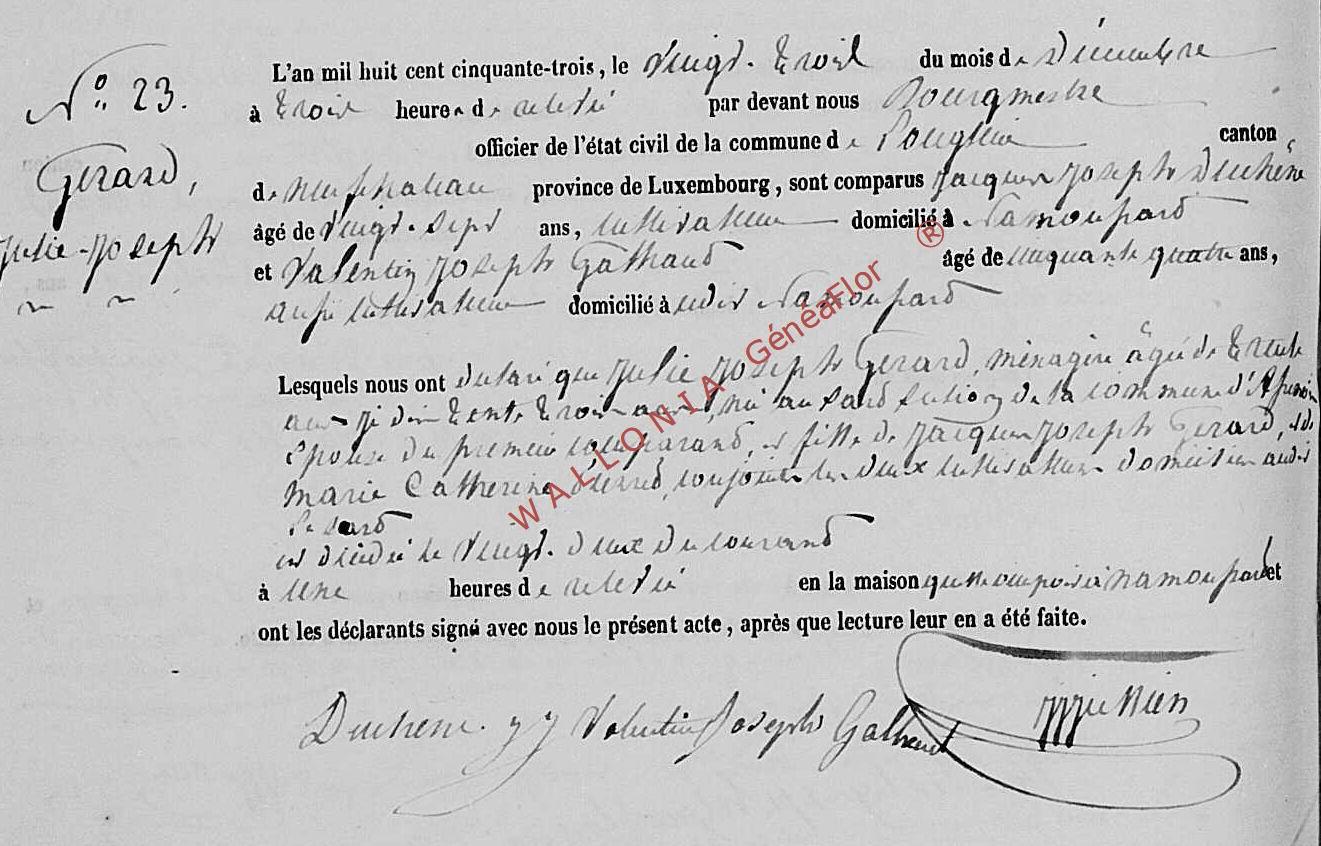 N° 23.
Gerard,
Julie-Joseph
L'an mil huit cent cinquante-trois, le Vingt-trois du mois de Décembre
à trois heures de relevée par devant nous Bourgmestre
officier de l'état civil de la commune de canton
de neufchateau province de Luxembourg, sont comparus Jacques Joseph Duchêne
âgé de vingt-sept ans, cultivateur domicilié à Namoupard
et Valentin Joseph Galhaud âgé de cinquante quatre ans,
aussi cultivateur domicilié à Namoupard
Lesquels nous ont déclaré que Julie Joseph Gerard, ménagère âgée de trente
née au Sard section de la commune d'
épouse du premier comparand, et fille de Jacques Joseph Gerard, et de
Marie Catherine les deux cultivateurs domiciliés audit
Sard
est décédée le Vingt-deux du courand
à une heures de relevée en la maison à namoupard et
ont les déclarants signé avec nous le présent acte, après que lecture leur en a été faite.
Duchêne. Valentin Joseph Galhaud
WALLONIA GénéaFlor ®